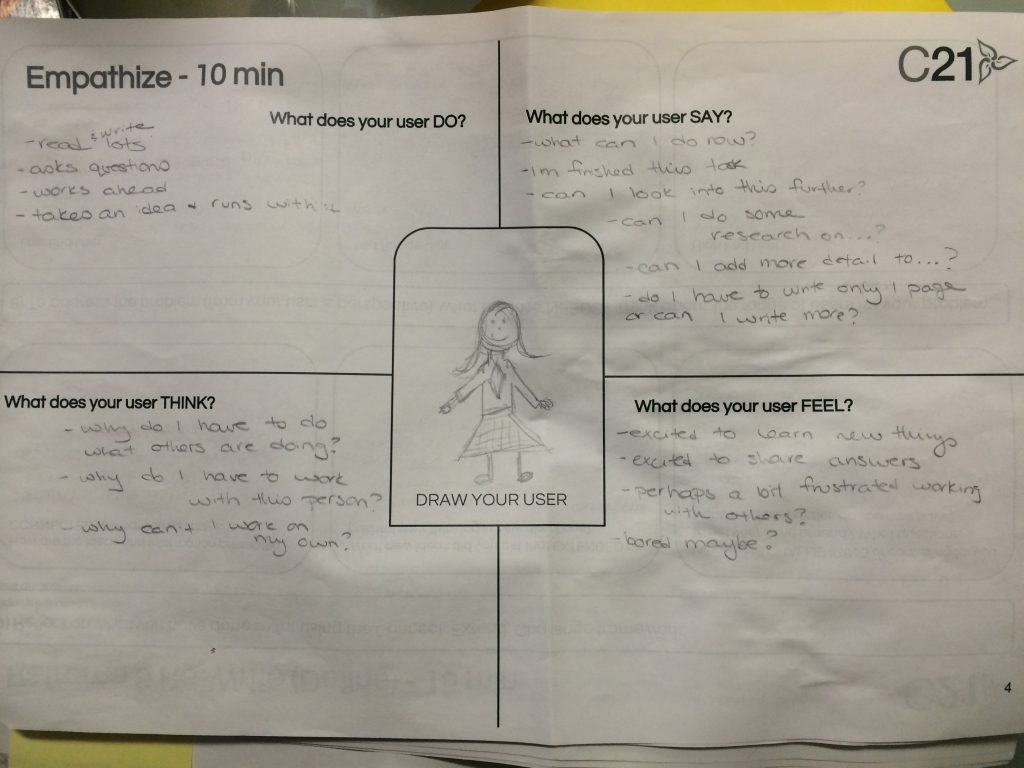 Empathize - 10 min
C21
What does your user DO?
- read & write lots
- asks questions
- works ahead
- takes an idea & runs with it
What does your user SAY?
- what can I do now?
- Im finished this task
- can I look into this further?
- can I do some
research on...?
- can I add more detail to...?
- do I have to write only 1 page
or can I write more?
DRAW YOUR USER
What does your user THINK?
- why do I have to do
what others are doing?
- why do I have to work
with this person?
- why can't I work on
my own?
What does your user FEEL?
- excited to learn new things
- excited to share answers
- perhaps a bit frustrated working
with others?
- bored maybe?
4